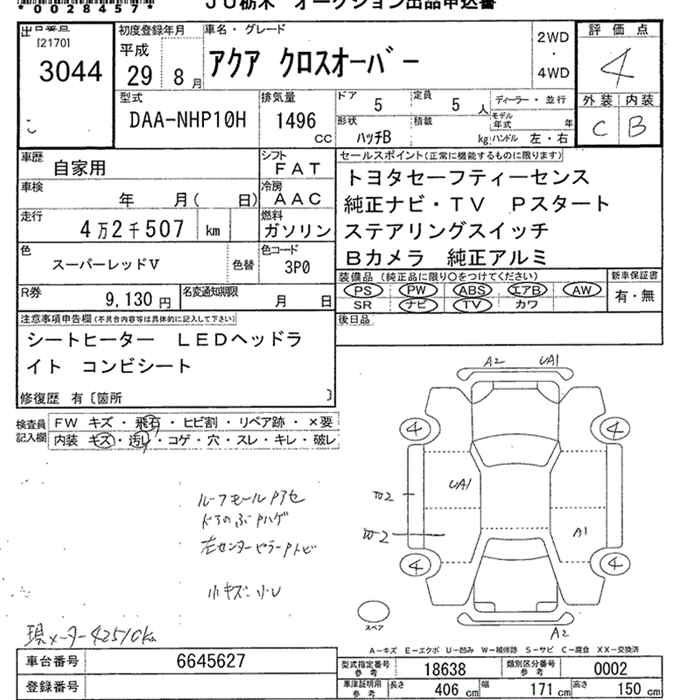 *0028457*
JU栃木 オークション出品申込書
出品番号
[2170]
3044
初度登録年月
平成
29年 8月
車名・グレード
アクア クロスオーバー
2WD
・
4WD
評価点
4
外装 内装
C B
型式
DAA-NHP10H
排気量
1496
CC
ドア 5
定員 5 人
ディーラー・並行
形状 ハッチB
積載 kg
モデル年式 年
ハンドル 左・右
車歴
自家用
シフト
FAT
車検
年 月( 日)
冷房
AAC
走行
4万2千507 km
燃料
ガソリン
色
スーパーレッドV
色替
色コード
3P0
R券
9,130 円
名変通知期限
月 日
セールスポイント(正常に機能するものに限ります)
トヨタセーフティーセンス
純正ナビ・TV Pスタート
ステアリングスイッチ
Bカメラ 純正アルミ
装備品 (純正品に限り○をつけてください)
PS PW ABS エアB AW
SR ナビ TV カワ
新車保証書
有・無
後日品
注意事項申告欄(不具合内容等は具体的に記入して下さい)
シートヒーター LEDヘッドラ
イト コンビシート
修復歴 有〔箇所 〕
検査員記入欄
FW キズ・飛石・ヒビ割・リペア跡・×要
内装 キズ・汚れ・コゲ・穴・スレ・キレ・破レ
A2 UA1
4 4
UA1
A1
4 4
A2
ルーフモールPアセ
左センターピラーPトビ
小キズ・小U
現メーター42510km
スペア
A-キズ E-エクボ U-凹み W-補修跡 S-サビ C-腐食 XX-交換済
車台番号 6645627
登録番号
型式指定番号参考 18638
類別区分番号参考 0002
車庫証明用参考 長さ 406 cm 幅 171 cm 高さ 150 cm